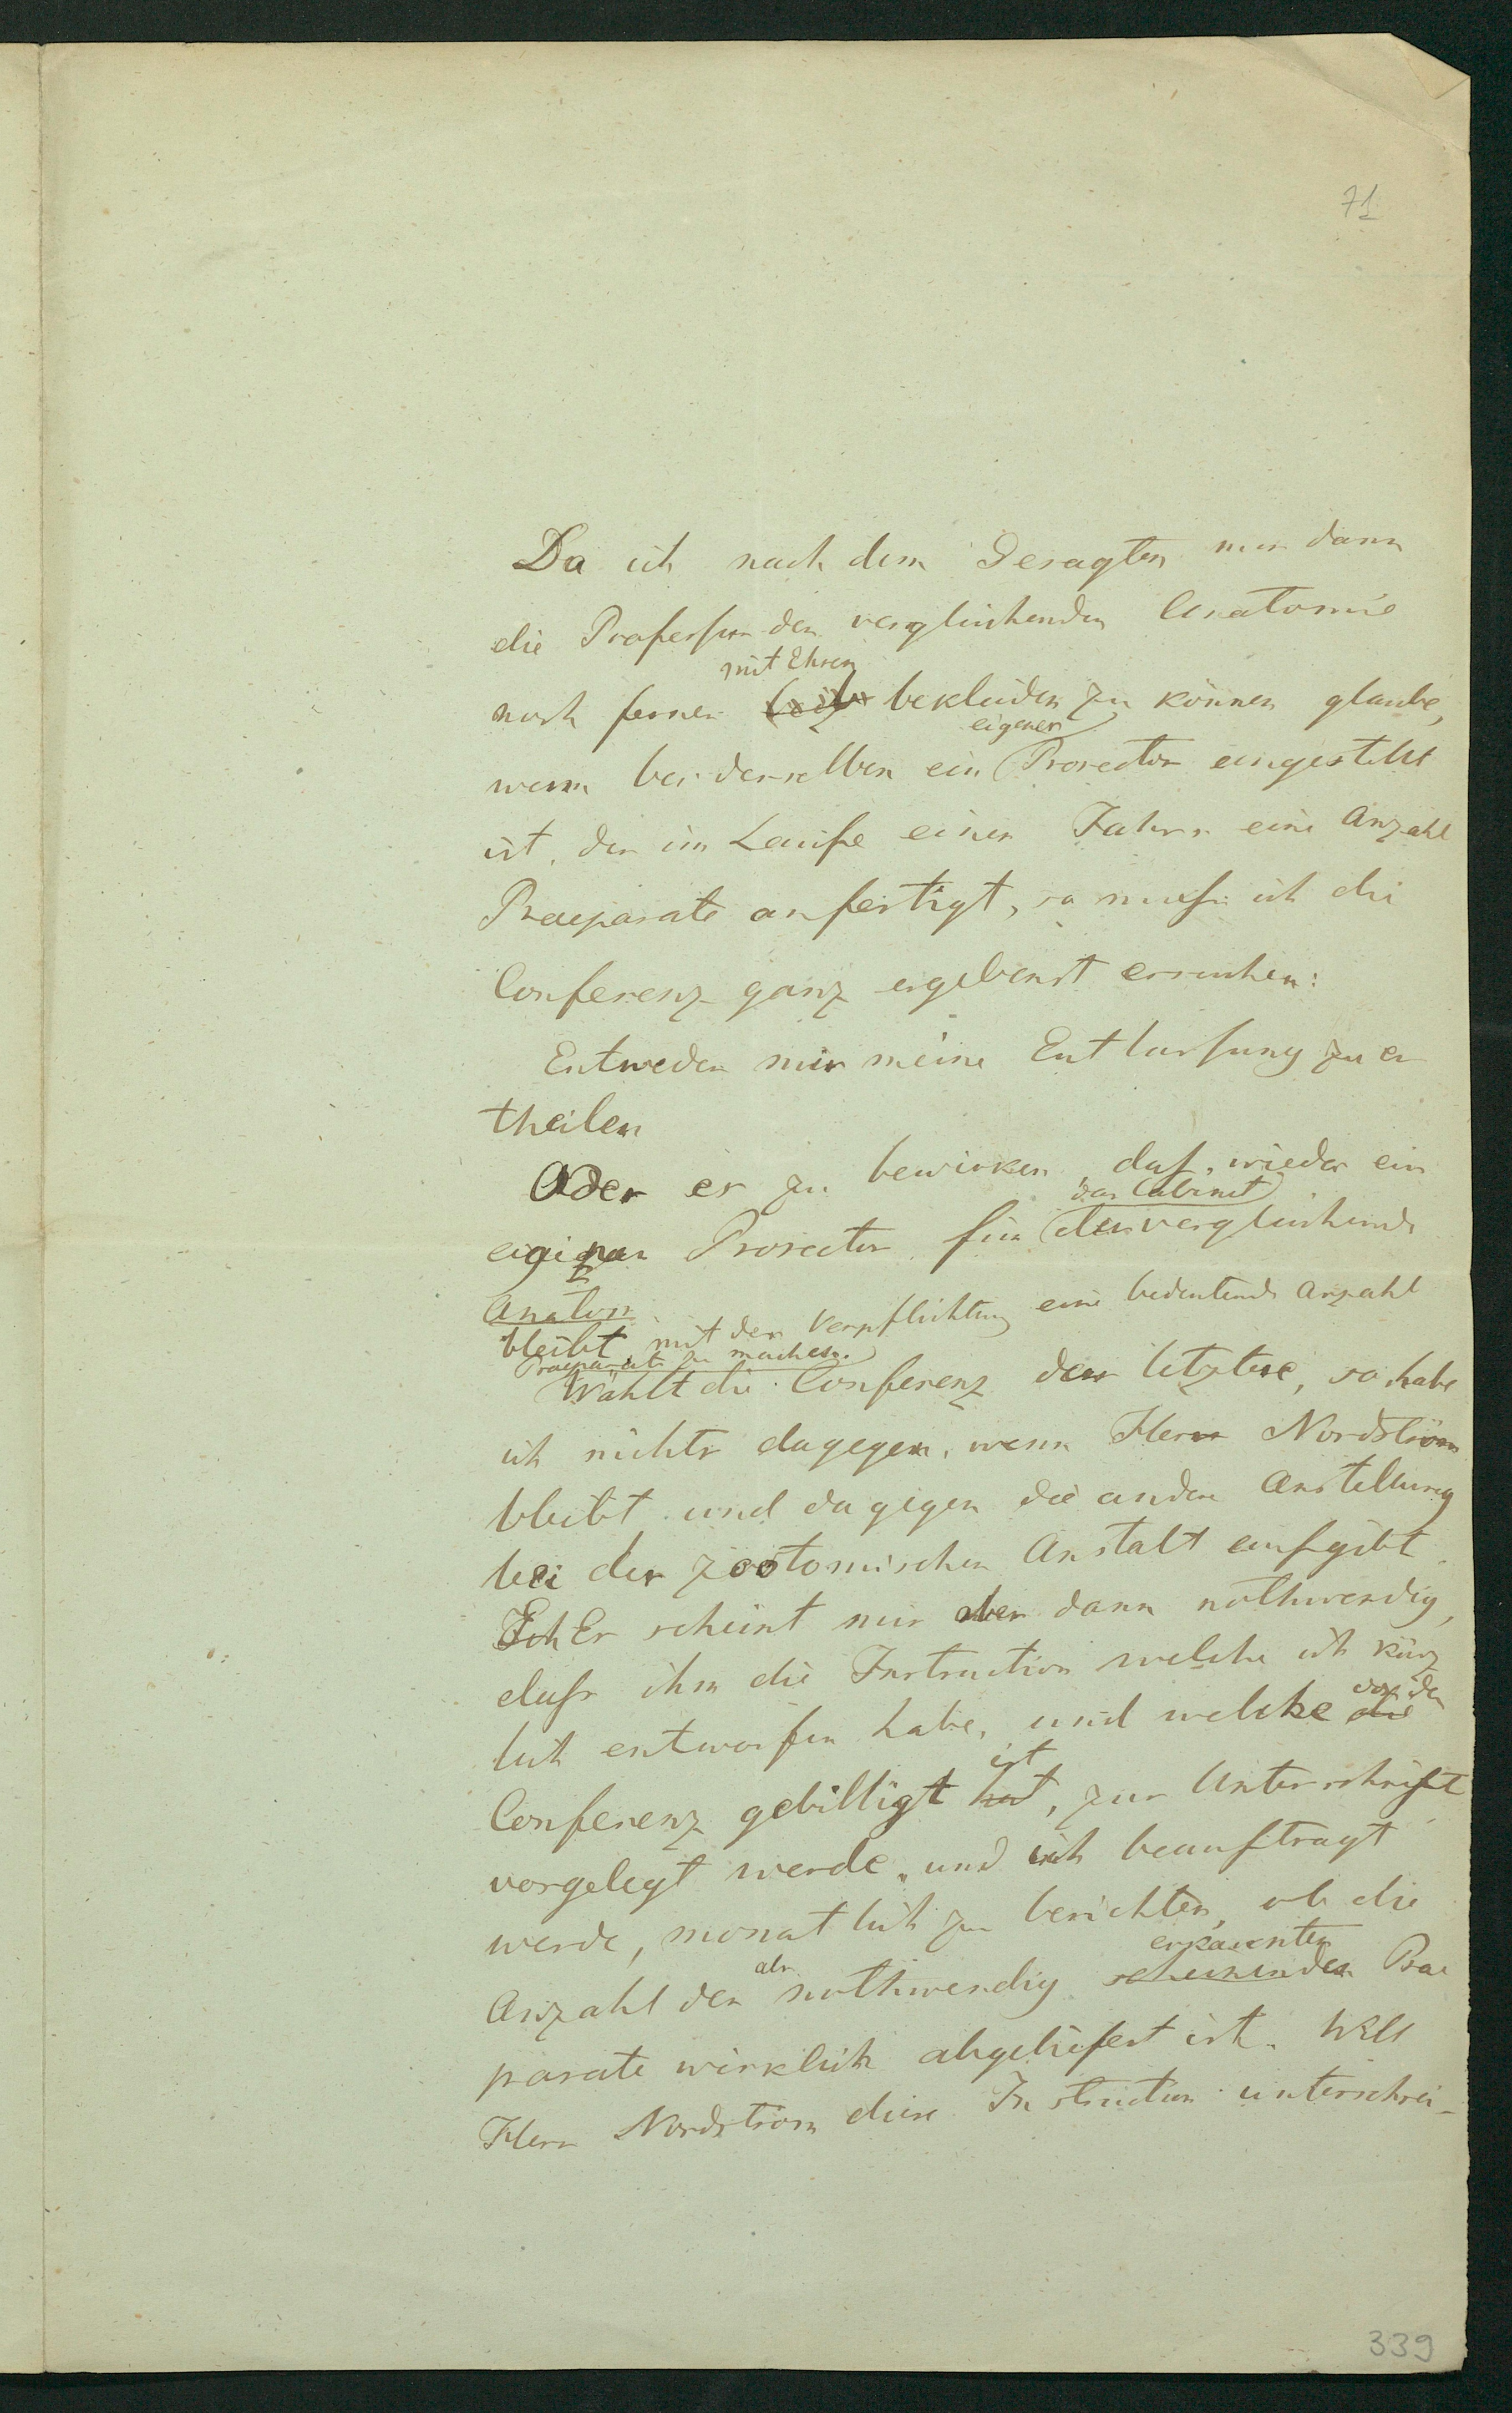 71
Da ich nach dem Gesagten nur dann
die Professur der vergleichenden Anatomie
mit Ehren
noch ferner bekleiden zu können glaube,
eigener
wenn bei derselben ein Prosector angestellt
ist, der im Laufe eines Jahrs eine Anzahl
Praeparate anfertigt, so muss ich die
Conferenz ganz ergebenst ersuchen:
Entweder mir meine Entlassung zu er
theilen
Oder es zu bewirken, dass wieder ein
das Cabinet
eigener Prosector für der vergleichende
Anatom
bleibt mit der Verpflichtung eine bedeutende Anzahl
Praeparate zu machen.
Wählt die Conferenz das letztere, so habe
ich nichts dagegen, wenn Herr Nordström
bleibt und dagegen die andre Anstellung
bei der zootomischen Anstalt aufgibt.
Ich Es scheint mir aber dann nothwendig,
dass ihm die Instruction welche ich kürz
von der
lich entworfen habe, und welche die
ist
Conferenz gebilligt hat, zur Unterschrift
vorgelegt werde, und ich beauftragt
werde, monatlich zu berichten, ob die
als erkannten
Anzahl der nothwendig scheinenden Prae
parate wirklich abgeliefert ist. Will
Herr Nordström diese Instruction unterschrei-
339